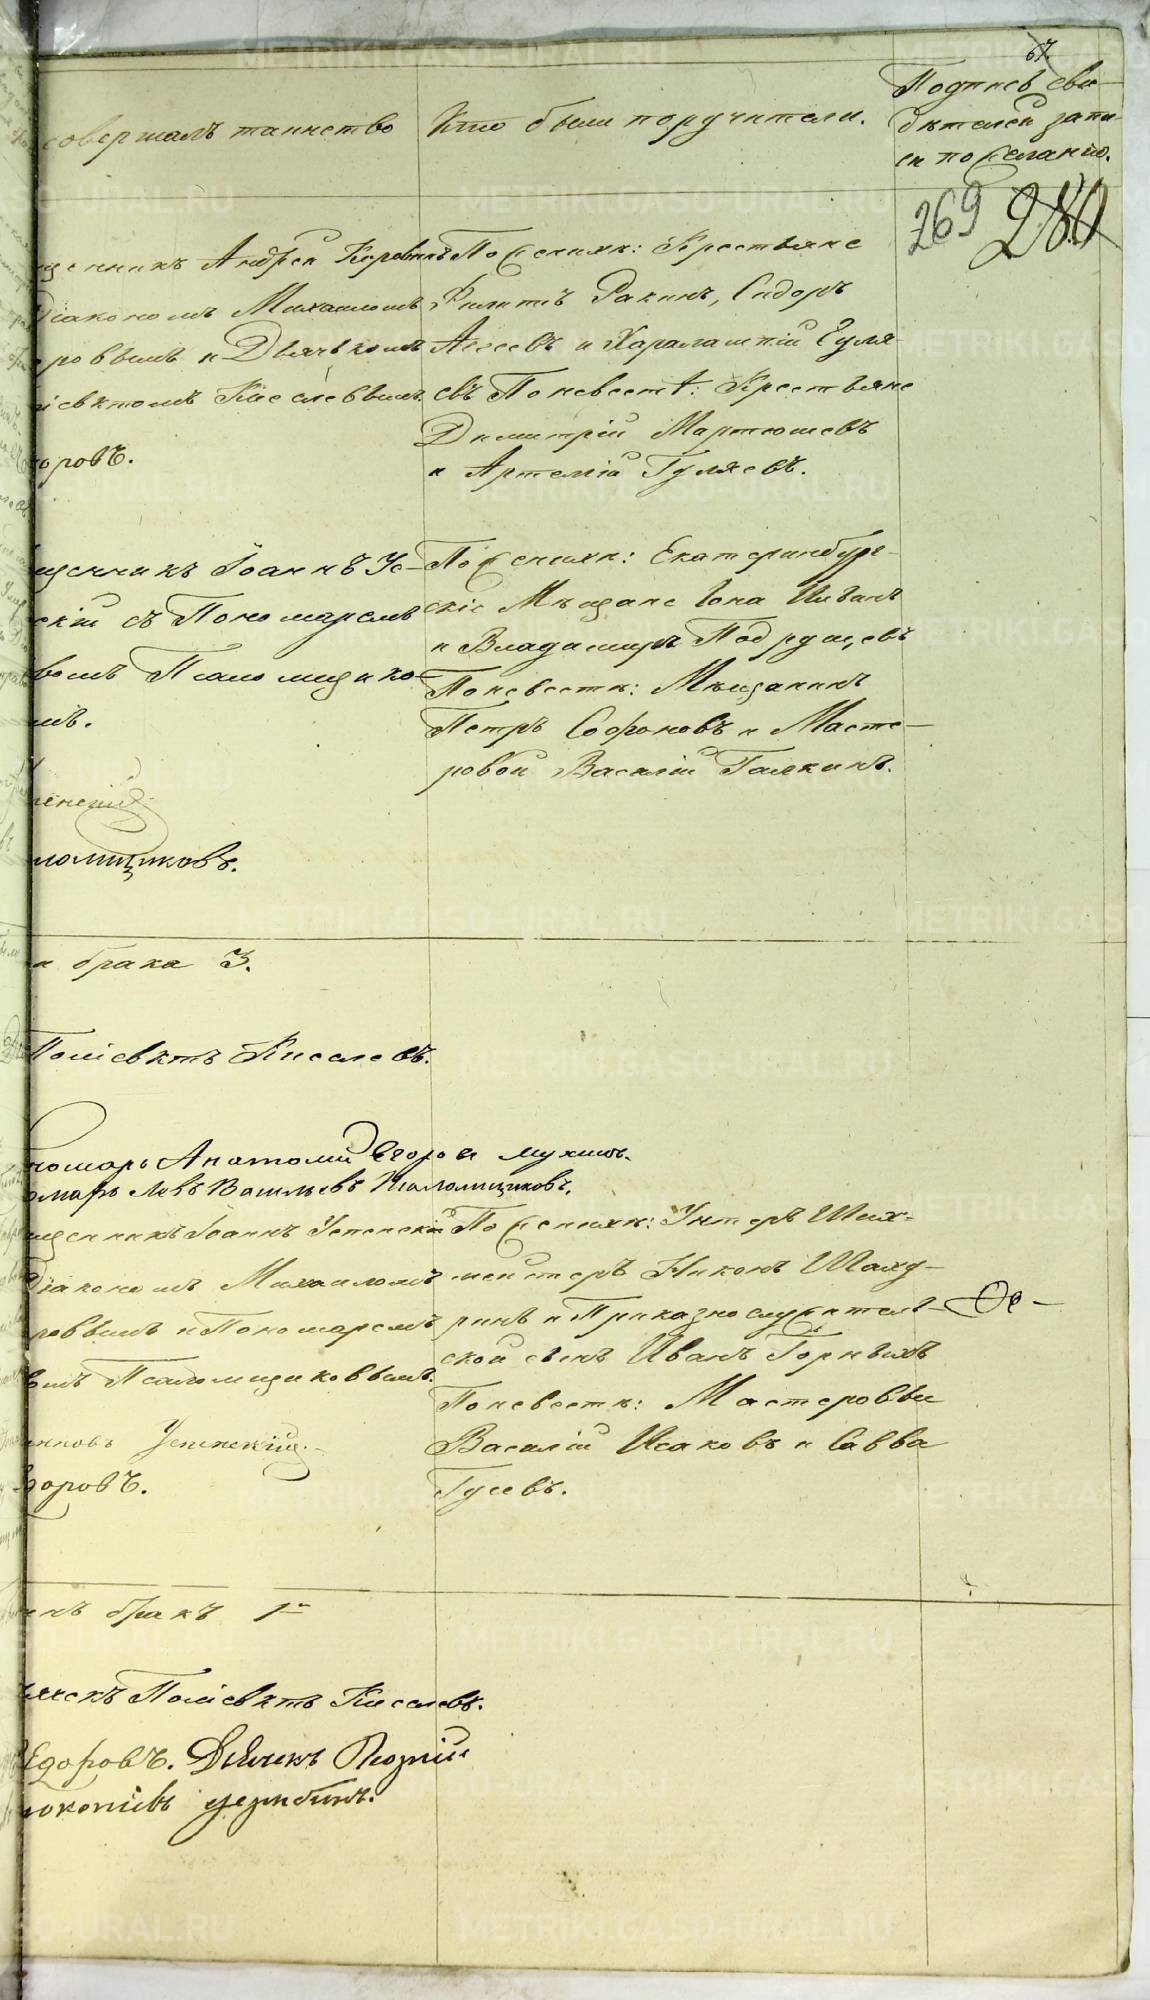 67.
совершалъ таинство
Кто были поручители.
Подпись сви-
дѣтелей запи-
си по желанію.
269 280
щенникъ Андрей Коровинъ
Діакономъ Михаиломъ
ровымъ и Дьячькомъ
іевктомъ Киселевымъ
доровъ.
По женихѣ: Крестьяне
Филипъ Ракинъ, Сидоръ
Агеевъ и Харалампій Гуля-
евъ По невестѣ: Крестьяне
Димитрій Мартюшевъ
и Артемій Гуляевъ.
щенникъ Іоаннъ Ус-
скій съ Пономаремъ
вомъ Псаломщико-
мъ.
пенскій
ломщиковъ.
По женихѣ: Екатеринбург-
скіе Мѣщане Іона Иванъ
и Владимиръ Подруцевъ
По невестѣ: Мѣщанинъ
Петръ Софоновъ и Масте-
ровой Василій Галкинъ.
и брака 3.
Поліевктъ Киселевъ.
номарь Анатолій Егоровъ Мухинъ.
омарь Левъ Васильевъ Псаломщиковъ.
щенникъ Іоаннъ Успенскій
Діакономъ Михаиломъ
ровымъ и Пономаремъ
вомъ Псаломщиковымъ.
Успенскій.
доровъ.
По женихѣ: Унтеръ Ших-
мейстеръ Никонъ Шаху-
ринъ и Приказнослужитель-
ской сынъ Иванъ Горныхъ
По невестѣ: Мастеровыи
Василій Исаковъ и Савва
Гусевъ.
нъ бракъ 1ⁿ
Поліевктъ Киселевъ.
Едоровъ. Дьячекъ Георгій
рокопіевъ